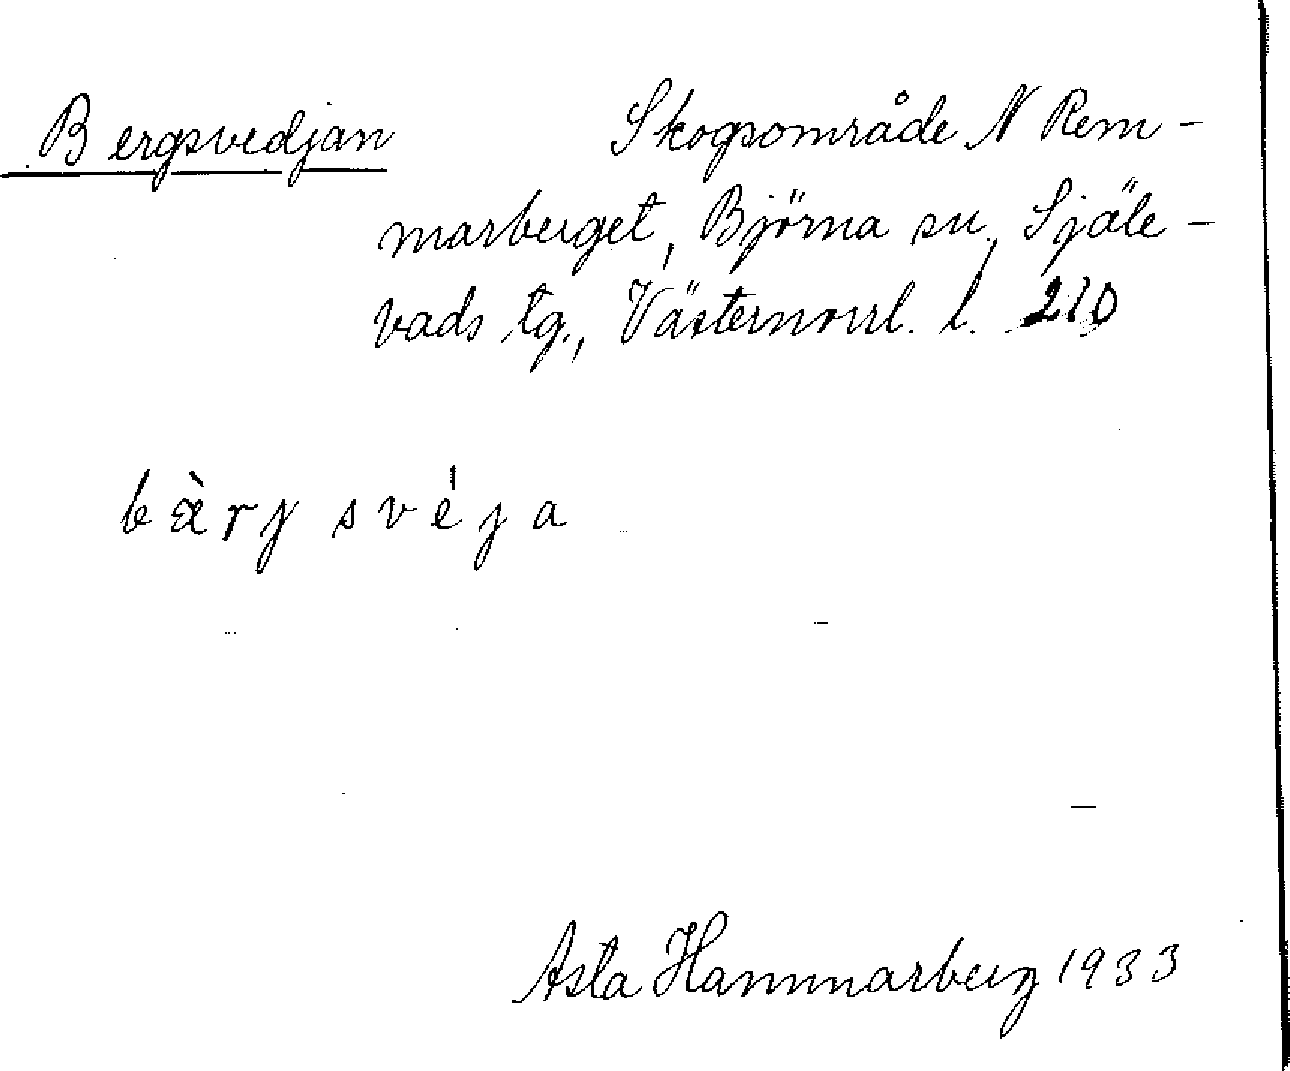 Bergsvedjan Skogsområde N Rem-
marberget, Björna sn, Själe-
vads tg., Västernorrl. l. 210
bæ̀rj svéja
Asta Hammarberg 1933